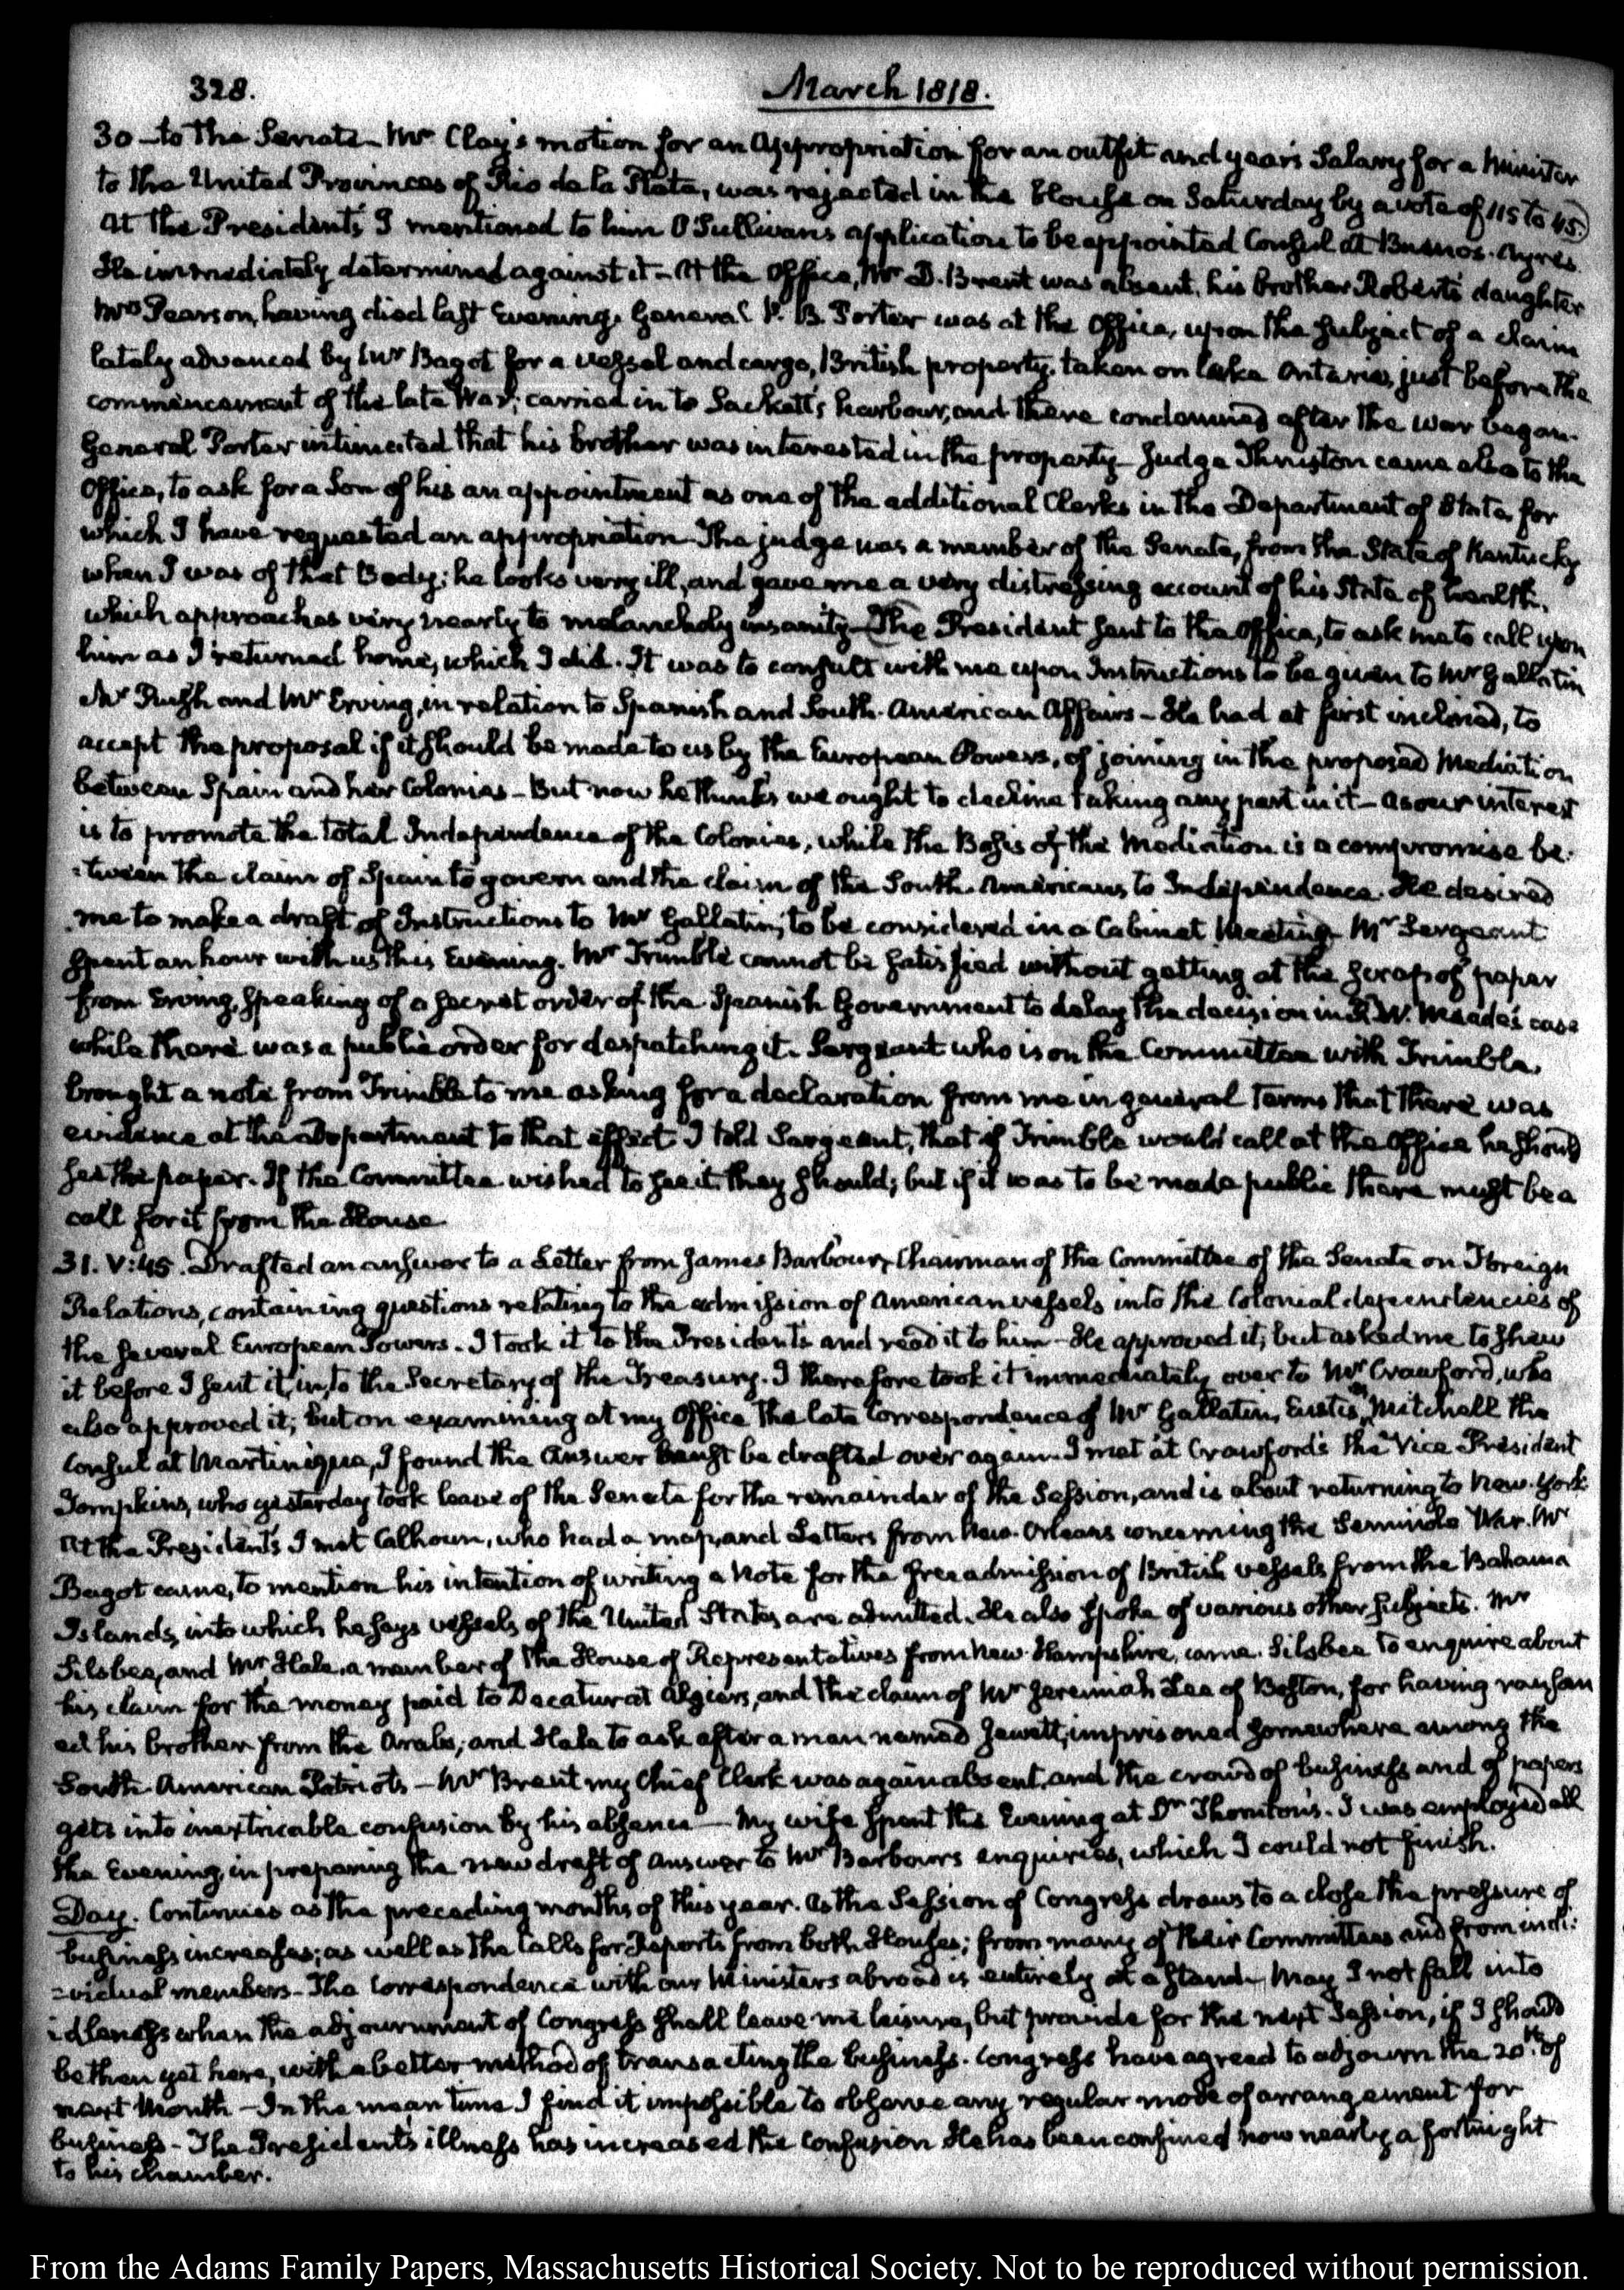 328.
March 1818.
30 - to the Senate - Mr Clay's motion for an Appropriation for an outfit and year's Salary for a Minister
to the United Provinces of Rio de la Plata, was rejected in the House on Saturday by a vote of 115 to 45.
At the President's I mentioned to him O'Sullivan's application to be appointed Consul at Buenos-Ayres.
He immediately determined against it - At the Office, Mr D. Brent was absent, his brother Robert's daughter
Mrs Pearson, having died last Evening. General P. B. Porter was at the Office, upon the subject of a claim
lately advanced by Mr Bagot for a vessel and cargo, British property, taken on lake Ontario, just before the
commencement of the late War; carried in to Sackett's harbour, and there condemned after the war began.
General Porter intimated that his brother was interested in the property - Judge Thruston came also to the
Office, to ask for a Son of his an appointment as one of the additional Clerks in the Department of State, for
which I have requested an appropriation - The judge was a member of the Senate, from the State of Kentucky
when I was of that Body; he looks very ill, and gave me a very distressing account of his State of health,
which approaches very nearly to melancholy insanity - The President sent to the Office, to ask me to call upon
him as I returned home, which I did. It was to consult with me upon Instructions to be given to Mr Gallatin
Mr Rush and Mr Erving, in relation to Spanish and South-American Affairs - He had at first inclined, to
accept the proposal if it should be made to us by the European Powers, of joining in the proposed Mediation
between Spain and her Colonies - But now he thinks we ought to decline taking any part in it - as our interest
is to promote the total Independence of the Colonies, while the Basis of the Mediation is a compromise be-
-tween the claim of Spain to govern and the claim of the South-Americans to Independence. He desired
me to make a draft of Instructions to Mr Gallatin, to be considered in a Cabinet Meeting - Mr Sergeant
spent an hour with us this Evening. Mr Trimble cannot be satisfied without getting at the scrap of paper
from Erving, speaking of a secret order of the Spanish Government to delay the decision in R. W. Meade's case
while there was a public order for despatching it. Sergeant who is on the Committee with Trimble,
brought a note from Trimble to me asking for a declaration from me in general terms that there was
evidence at the Department to that effect. I told Sergeant, that if Trimble would call at the Office he should
see the paper. If the Committee wished to see it they should; but if it was to be made public there must be a
call for it from the House
31. V:45. Drafted an answer to a Letter from James Barbour, Chairman of the Committee of the Senate on Foreign
Relations, containing questions relating to the admission of American vessels into the Colonial dependencies of
the several European Powers. I took it to the President's and read it to him - He approved it; but asked me to shew
it before I sent it in, to the Secretary of the Treasury. I therefore took it immediately over to Mr Crawford, who
also approved it; but on examining at my Office the late Correspondence of Mr Gallatin, Eustis, Mitchell the
Consul at Martinique, I found the Answer must be drafted over again. I met at Crawford's the Vice-President
Tompkins, who yesterday took leave of the Senate for the remainder of the Session, and is about returning to New-York
At the President's I met Calhoun, who had a map, and Letters from New-Orleans concerning the Seminole War. Mr
Bagot came, to mention his intention of writing a Note for the free admission of British vessels from the Bahama
Islands, into which he says vessels of the United States are admitted. He also spoke of various other subjects. Mr
Silsbee, and Mr Hale, a member of the House of Representatives from New-Hampshire, came. Silsbee to enquire about
his claim for the money paid to Decatur at Algiers, and the claim of Mr Jeremiah Lee of Boston, for having ransom
ed his brother from the Arabs; and Hale to ask after a man named Jewett, imprisoned somewhere among the
South-American Patriots - Mr Brent my Chief Clerk was again absent, and the crowd of business and of papers
gets into inextricable confusion by his absence - My wife spent the Evening at Dr Thornton's. I was employed all
the Evening, in preparing the new draft of Answer to Mr Barbour's enquiries, which I could not finish.
Day. Continues as the preceding months of this year. As the Session of Congress draws to a close the pressure of
business increases; as well as the Calls for Reports from both Houses; from many of their Committees and from indi-
-vidual members - The Correspondence with our Ministers abroad is entirely at a stand - May I not fall into
idleness when the adjournment of Congress shall leave me leisure, but provide for the next Session, if I should
be then yet here, with a better method of transacting the business. Congress have agreed to adjourn the 20th of
next Month - In the mean time I find it impossible to observe any regular mode of arrangement for
business - The President's illness has increased the confusion He has been confined now nearly a fortnight
to his chamber.
From the Adams Family Papers, Massachusetts Historical Society. Not to be reproduced without permission.